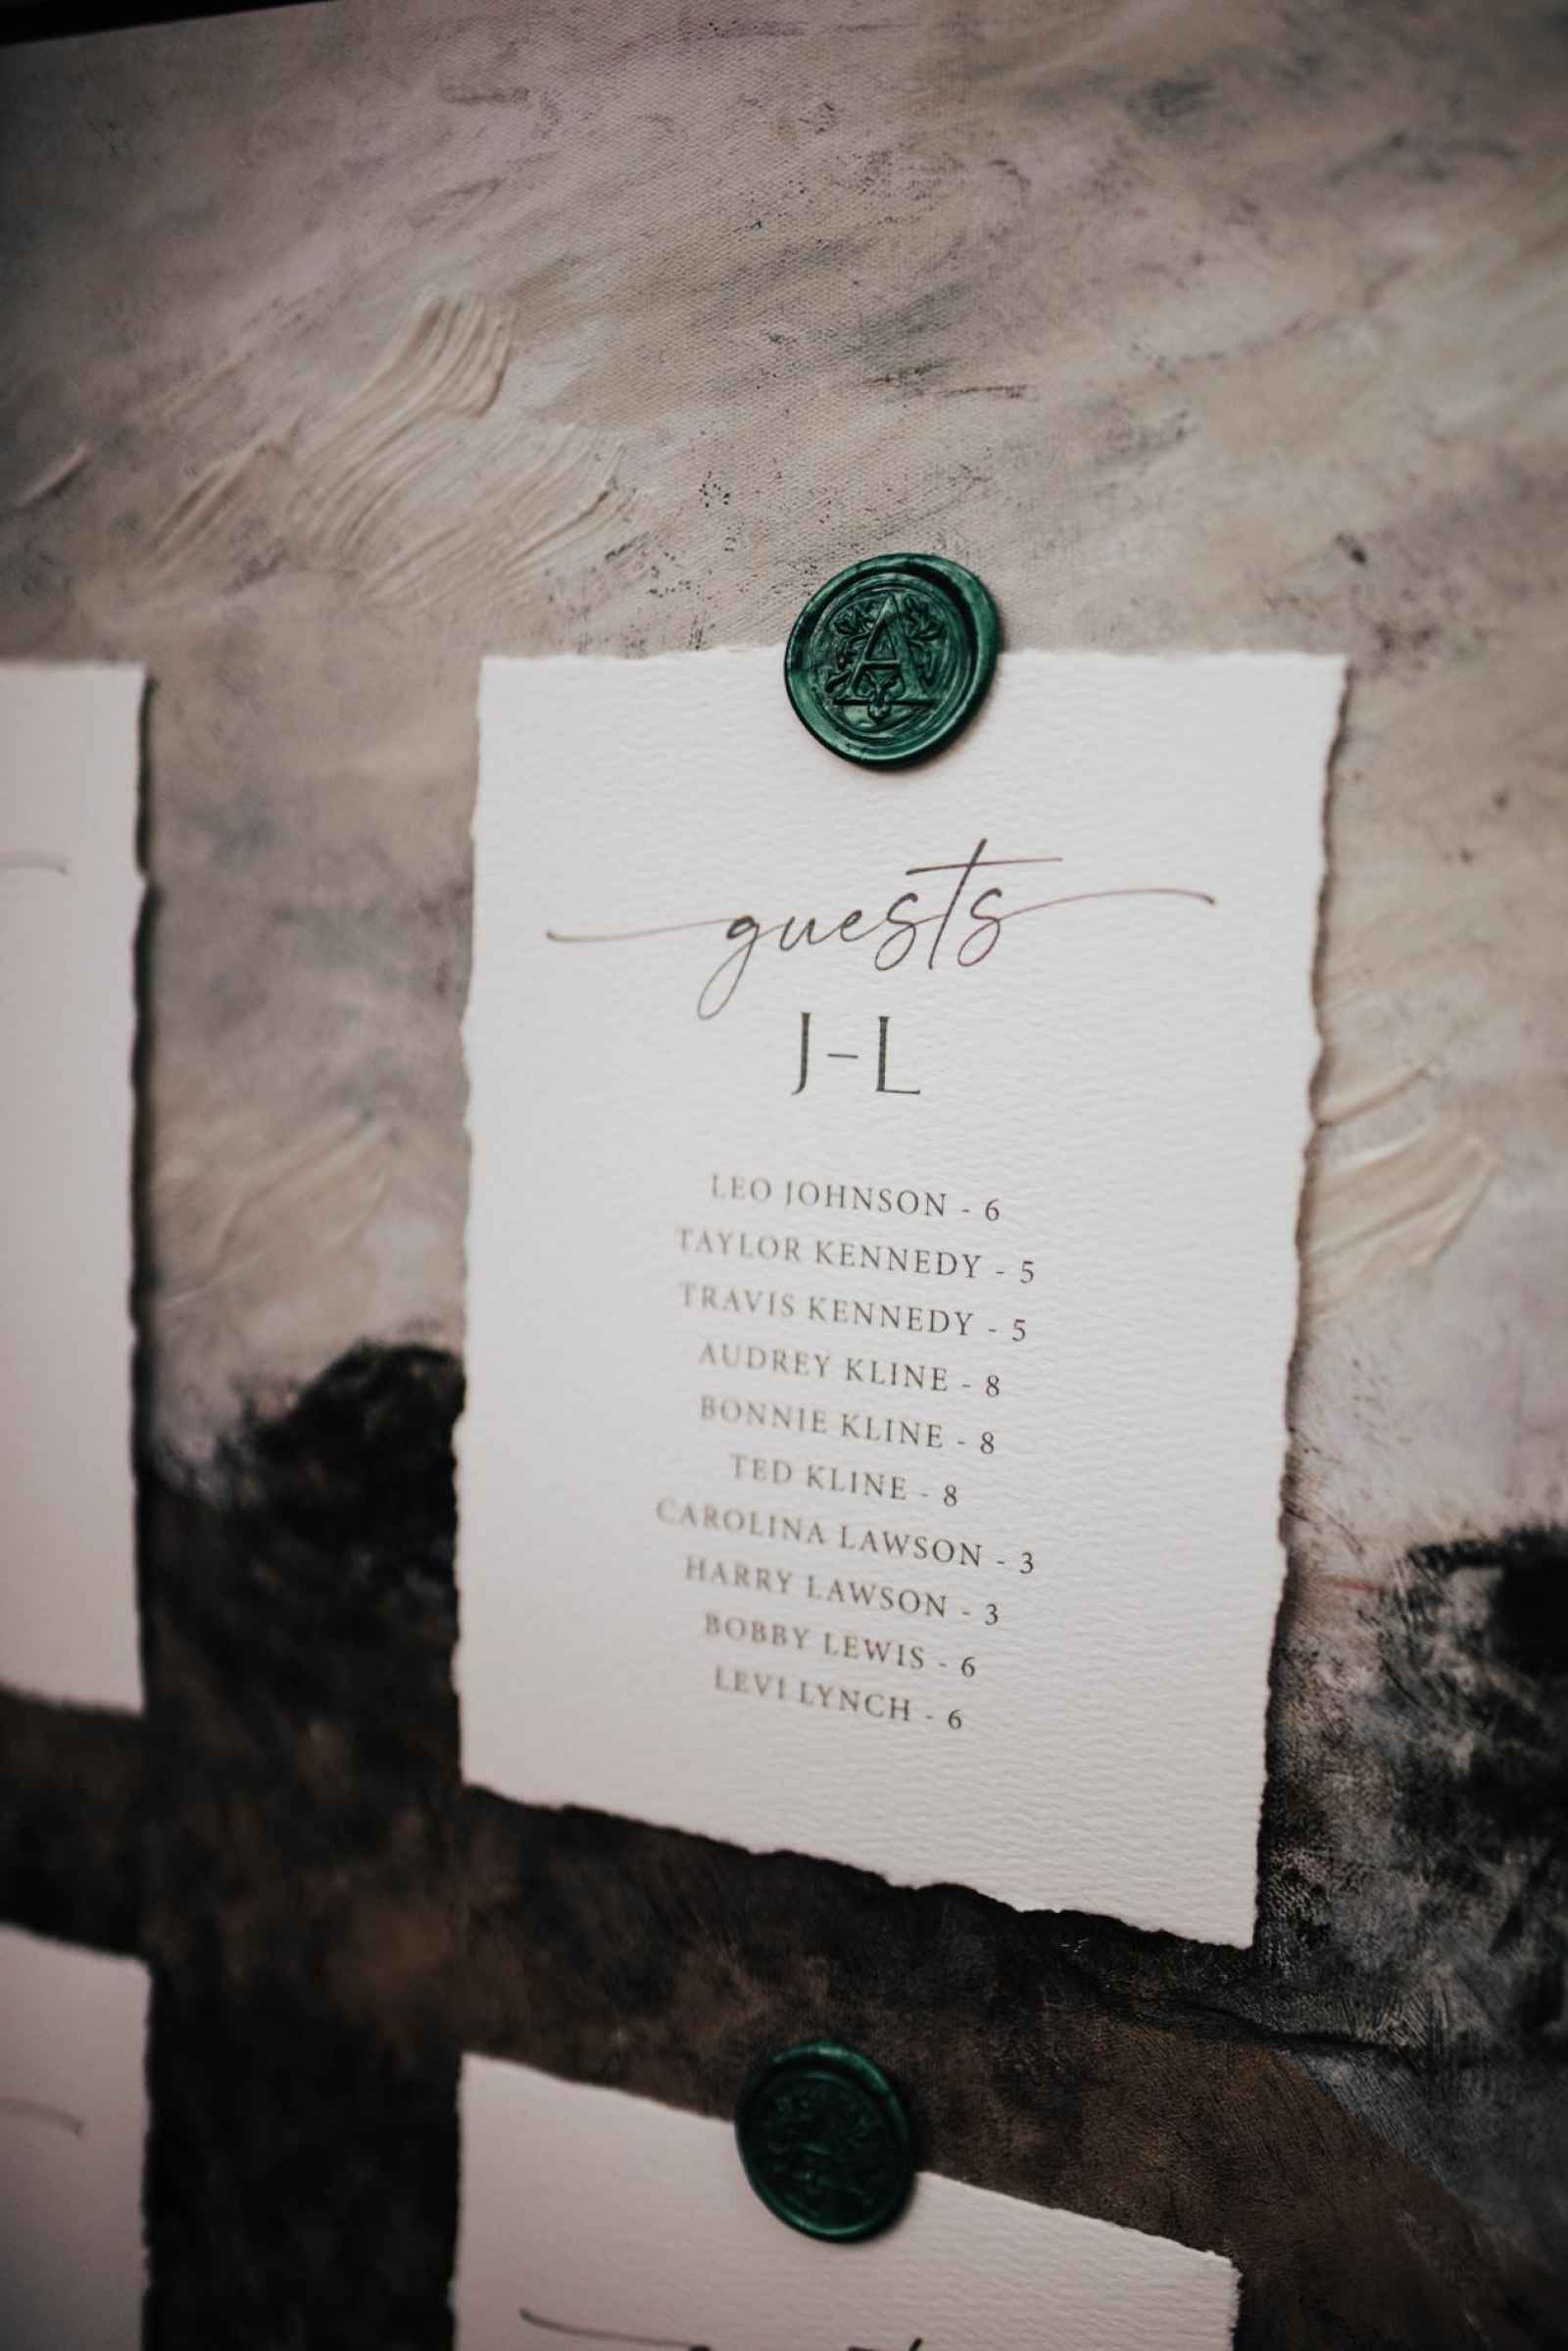 A
guests
J-L
LEO JOHNSON - 6
TAYLOR KENNEDY - 5
TRAVIS KENNEDY - 5
AUDREY KLINE - 8
BONNIE KLINE - 8
TED KLINE - 8
CAROLINA LAWSON - 3
HARRY LAWSON - 3
BOBBY LEWIS - 6
LEVI LYNCH - 6